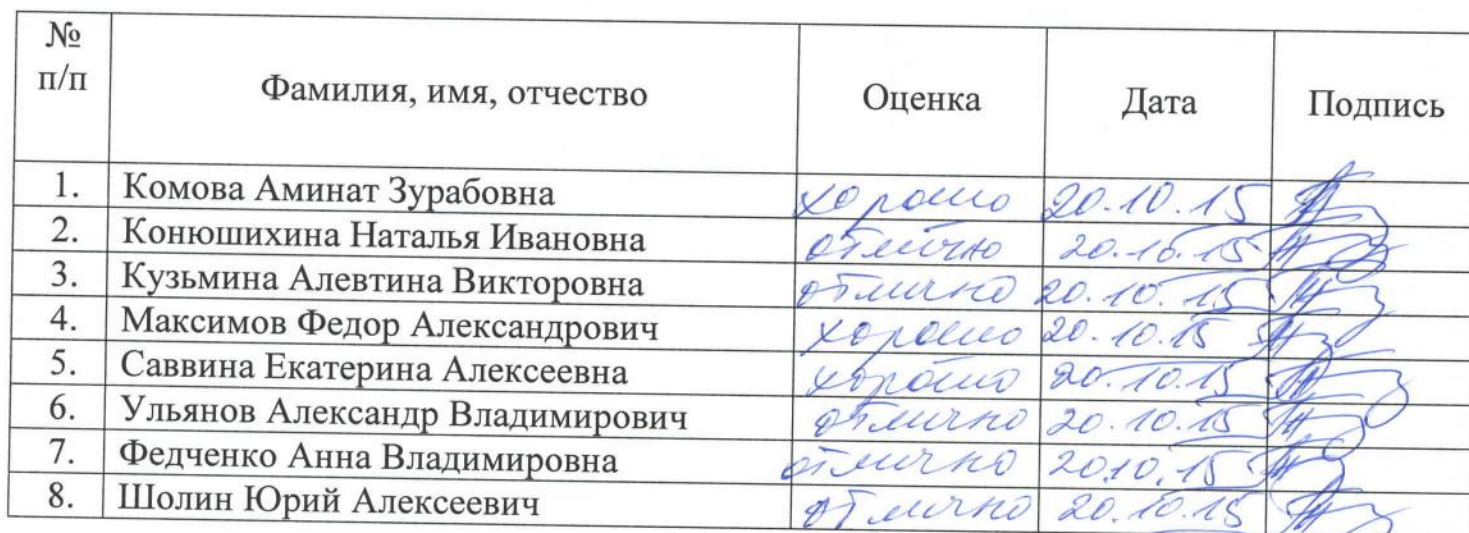 № п/п Фамилия, имя, отчество Оценка Дата Подпись
1. Комова Аминат Зурабовна хорошо 20.10.15
2. Конюшихина Наталья Ивановна отлично 20.10.15
3. Кузьмина Алевтина Викторовна отлично 20.10.15
4. Максимов Федор Александрович хорошо 20.10.15
5. Саввина Екатерина Алексеевна хорошо 20.10.15
6. Ульянов Александр Владимирович отлично 20.10.15
7. Федченко Анна Владимировна отлично 20.10.15
8. Шолин Юрий Алексеевич отлично 20.10.15